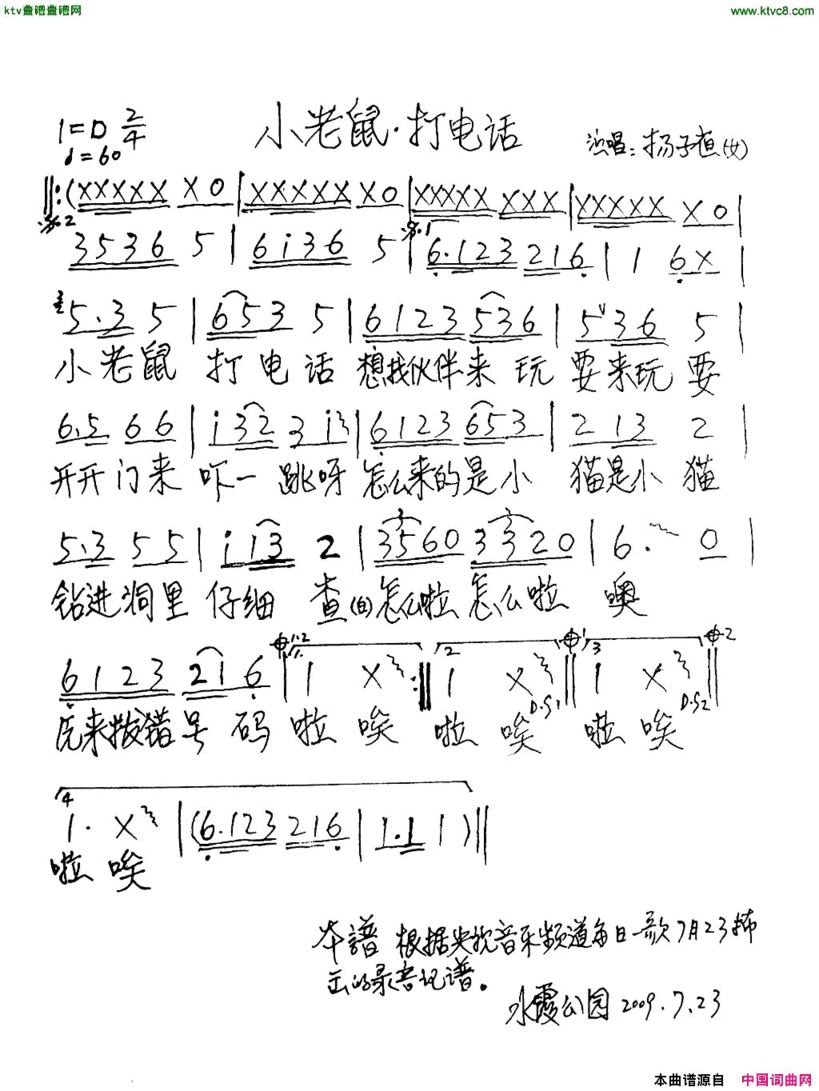 ktv查谱查谱网 www.ktvc8.com
小老鼠·打电话
1=D 2/4
♩=60
演唱:杨子（女）
‖:(XXXXX X0|XXXXX X0|XXXXX XXX|XXXXX X0|
3536 5|6i36 5|6.123 216|1 6X|
5.3 5|653 5|6123 536|5 36 5|
小老鼠 打电话 想找伙伴来玩耍来玩耍
6.5 66|i32 3i|6123 653|2 13 2|
开开门来吓一跳呀怎么来的是小猫是小猫
5.3 55|ii3 2|3560 3320|6. 0|
钻进洞里仔细查(白)怎么啦怎么啦 噢
6123 216‖1 X:‖1 X‖1 X‖
D.S1 D.S2
元来拨错号码啦唉 啦唉 啦唉
1. X|(6.123 216|1.1 1)‖
啦唉
本譜根据央视音乐频道每日一歌7月23播
出的录音记谱。
水霞公园 2009.7.23
本曲谱源自 中国词曲网